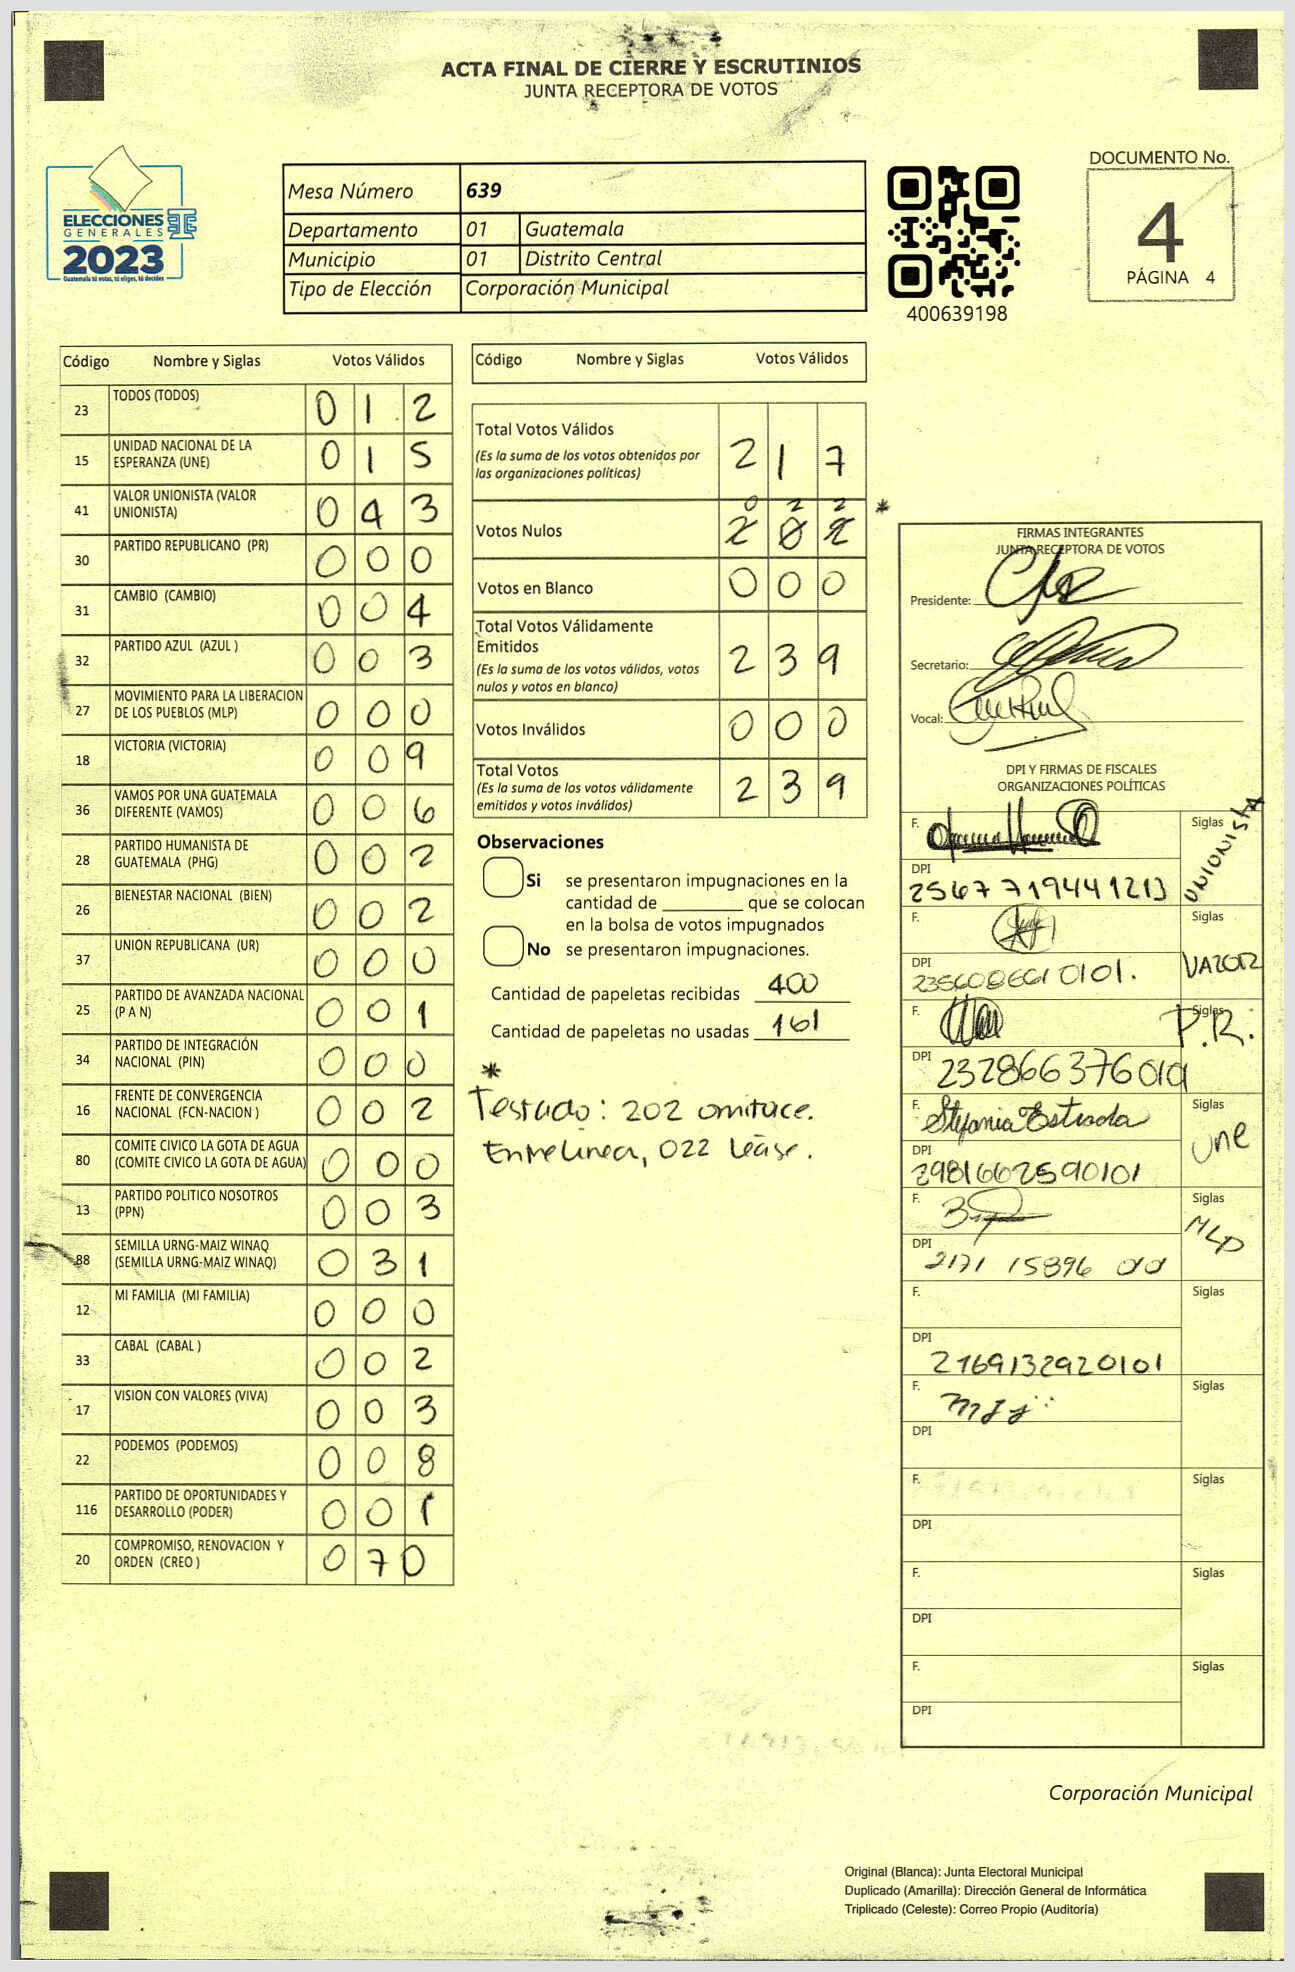 ACTA FINAL DE CIERRE Y ESCRUTINIOS
JUNTA RECEPTORA DE VOTOS
ELECCIONES
GENERALES
2023
Guatemala tú votas, tú eliges, tú decides
Mesa Número 639
Departamento 01 Guatemala
Municipio 01 Distrito Central
Tipo de Elección Corporación Municipal
400639198
DOCUMENTO No.
4
PÁGINA 4
Código Nombre y Siglas Votos Válidos
23 TODOS (TODOS) 0 1 2
15 UNIDAD NACIONAL DE LA ESPERANZA (UNE) 0 1 5
41 VALOR UNIONISTA (VALOR UNIONISTA) 0 4 3
30 PARTIDO REPUBLICANO (PR) 0 0 0
31 CAMBIO (CAMBIO) 0 0 4
32 PARTIDO AZUL (AZUL ) 0 0 3
27 MOVIMIENTO PARA LA LIBERACION DE LOS PUEBLOS (MLP) 0 0 0
18 VICTORIA (VICTORIA) 0 0 9
36 VAMOS POR UNA GUATEMALA DIFERENTE (VAMOS) 0 0 6
28 PARTIDO HUMANISTA DE GUATEMALA (PHG) 0 0 2
26 BIENESTAR NACIONAL (BIEN) 0 0 2
37 UNION REPUBLICANA (UR) 0 0 0
25 PARTIDO DE AVANZADA NACIONAL (P A N) 0 0 1
34 PARTIDO DE INTEGRACIÓN NACIONAL (PIN) 0 0 0
16 FRENTE DE CONVERGENCIA NACIONAL (FCN-NACION ) 0 0 2
80 COMITE CIVICO LA GOTA DE AGUA (COMITE CIVICO LA GOTA DE AGUA) 0 0 0
13 PARTIDO POLITICO NOSOTROS (PPN) 0 0 3
88 SEMILLA URNG-MAIZ WINAQ (SEMILLA URNG-MAIZ WINAQ) 0 3 1
12 MI FAMILIA (MI FAMILIA) 0 0 0
33 CABAL (CABAL ) 0 0 2
17 VISION CON VALORES (VIVA) 0 0 3
22 PODEMOS (PODEMOS) 0 0 8
116 PARTIDO DE OPORTUNIDADES Y DESARROLLO (PODER) 0 0 1
20 COMPROMISO, RENOVACION Y ORDEN (CREO ) 0 7 0
Código Nombre y Siglas Votos Válidos
Total Votos Válidos 2 1 7
(Es la suma de los votos obtenidos por
las organizaciones políticas)
0 2 2 *
Votos Nulos 2 0 2
Votos en Blanco 0 0 0
Total Votos Válidamente
Emitidos 2 3 9
(Es la suma de los votos válidos, votos
nulos y votos en blanco)
Votos Inválidos 0 0 0
Total Votos 2 3 9
(Es la suma de los votos válidamente
emitidos y votos inválidos)
Observaciones
Si se presentaron impugnaciones en la
cantidad de ________ que se colocan
en la bolsa de votos impugnados
No se presentaron impugnaciones.
Cantidad de papeletas recibidas 400
Cantidad de papeletas no usadas 161
*
Testado: 202 omitace.
Entrelinea, 022 Léase.
FIRMAS INTEGRANTES
JUNTA RECEPTORA DE VOTOS
Presidente:
Secretario:
Vocal:
DPI Y FIRMAS DE FISCALES
ORGANIZACIONES POLÍTICAS
F. Siglas UNIONISTA
DPI 2567 71944 1213
F. Siglas VALOR
DPI
F. Siglas P.R.
DPI
F. Stefania Estrada Siglas une
DPI 2981662590101
F. Siglas MLP
DPI 2171 15896
F. Siglas
DPI 2169132920101
F. Siglas
DPI
F. Siglas
DPI
F. Siglas
DPI
F. Siglas
DPI
Corporación Municipal
Original (Blanca): Junta Electoral Municipal
Duplicado (Amarilla): Dirección General de Informática
Triplicado (Celeste): Correo Propio (Auditoría)